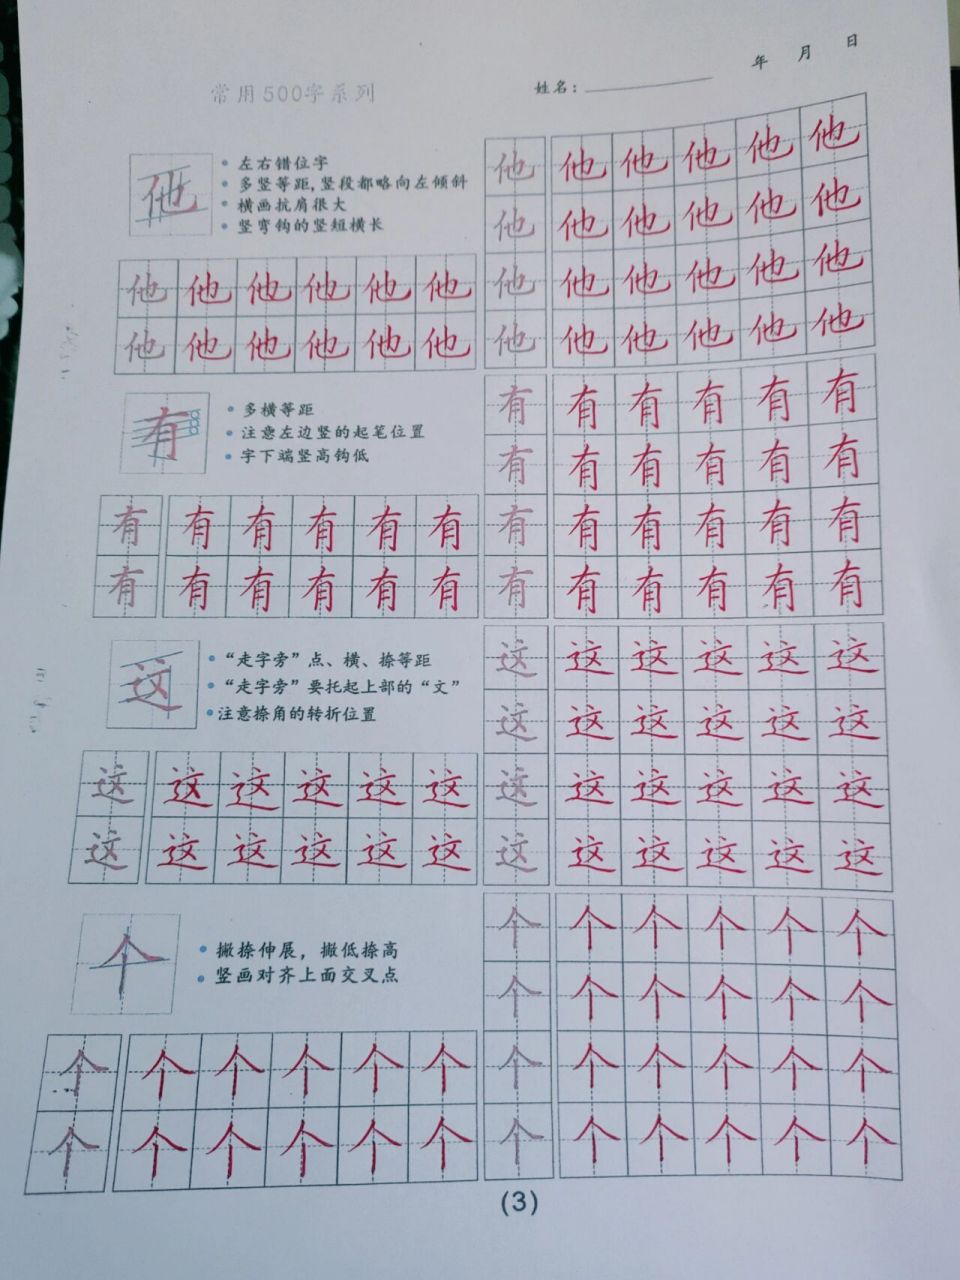 常用500字系列
姓名：
年 月 日
他
左右错位字
多竖等距,竖段都略向左倾斜
横画抗肩很大
竖弯钩的竖短横长
他 他 他 他 他 他
他 他 他 他 他 他
他 他 他 他 他 他
他 他 他 他 他 他
他 他 他 他 他 他
他 他 他 他 他 他
有
多横等距
注意左边竖的起笔位置
字下端竖高钩低
有 有 有 有 有 有
有 有 有 有 有 有
有 有 有 有 有 有
有 有 有 有 有 有
有 有 有 有 有 有
有 有 有 有 有 有
这
“走字旁”点、横、捺等距
“走字旁”要托起上部的“文”
注意捺角的转折位置
这 这 这 这 这 这
这 这 这 这 这 这
这 这 这 这 这 这
这 这 这 这 这 这
这 这 这 这 这 这
这 这 这 这 这 这
个
撇捺伸展，撇低捺高
竖画对齐上面交叉点
个 个 个 个 个 个
个 个 个 个 个 个
个 个 个 个 个 个
个 个 个 个 个 个
个 个 个 个 个 个
个 个 个 个 个 个
(3)